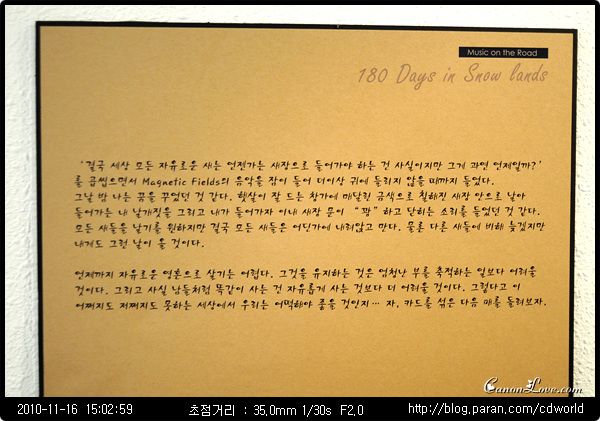 Music on the Road
180 Days in Snow lands
'결국 세상 모든 자유로운 새는 언젠가는 새장으로 들어가야 하는 건 사실이지만 그게 과연 언제일까?'
를 곱씹으면서 Magnetic Fields의 음악을 잠이 들어 더이상 귀에 들리지 않을 때까지 들었다.
그날 밤 나는 꿈을 꾸었던 것 같다. 햇살이 잘 드는 창가에 매달린 금색으로 칠해진 새장 안으로 날아
들어가는 내 날개짓을 그리고 내가 들어가자 이내 새장 문이 "쾅"하고 닫히는 소리를 들었던 것 같다.
모든 새들은 날기를 원하지만 결국 모든 새들은 어딘가에 내려앉고 만다. 물론 다른 새들에 비해 늦겠지만
내게도 그런 날이 올 것이다.
언제까지 자유로운 영혼으로 살기는 어렵다. 그것을 유지하는 것은 엄청난 부를 축적하는 일보다 어려울
것이다. 그리고 사실 남들처럼 똑같이 사는 건 자유롭게 사는 것보다 더 어려울 것이다. 그렇다고 이
어쩌지도 저쩌지도 못하는 세상에서 우리는 어떡해야 좋을 것인지… 자, 카드를 섞은 다음 패를 돌려보자.
CanonLove.com
2010-11-16 15:02:59 초점거리 : 35.0mm 1/30s F2.0 http://blog.paran.com/cdworld